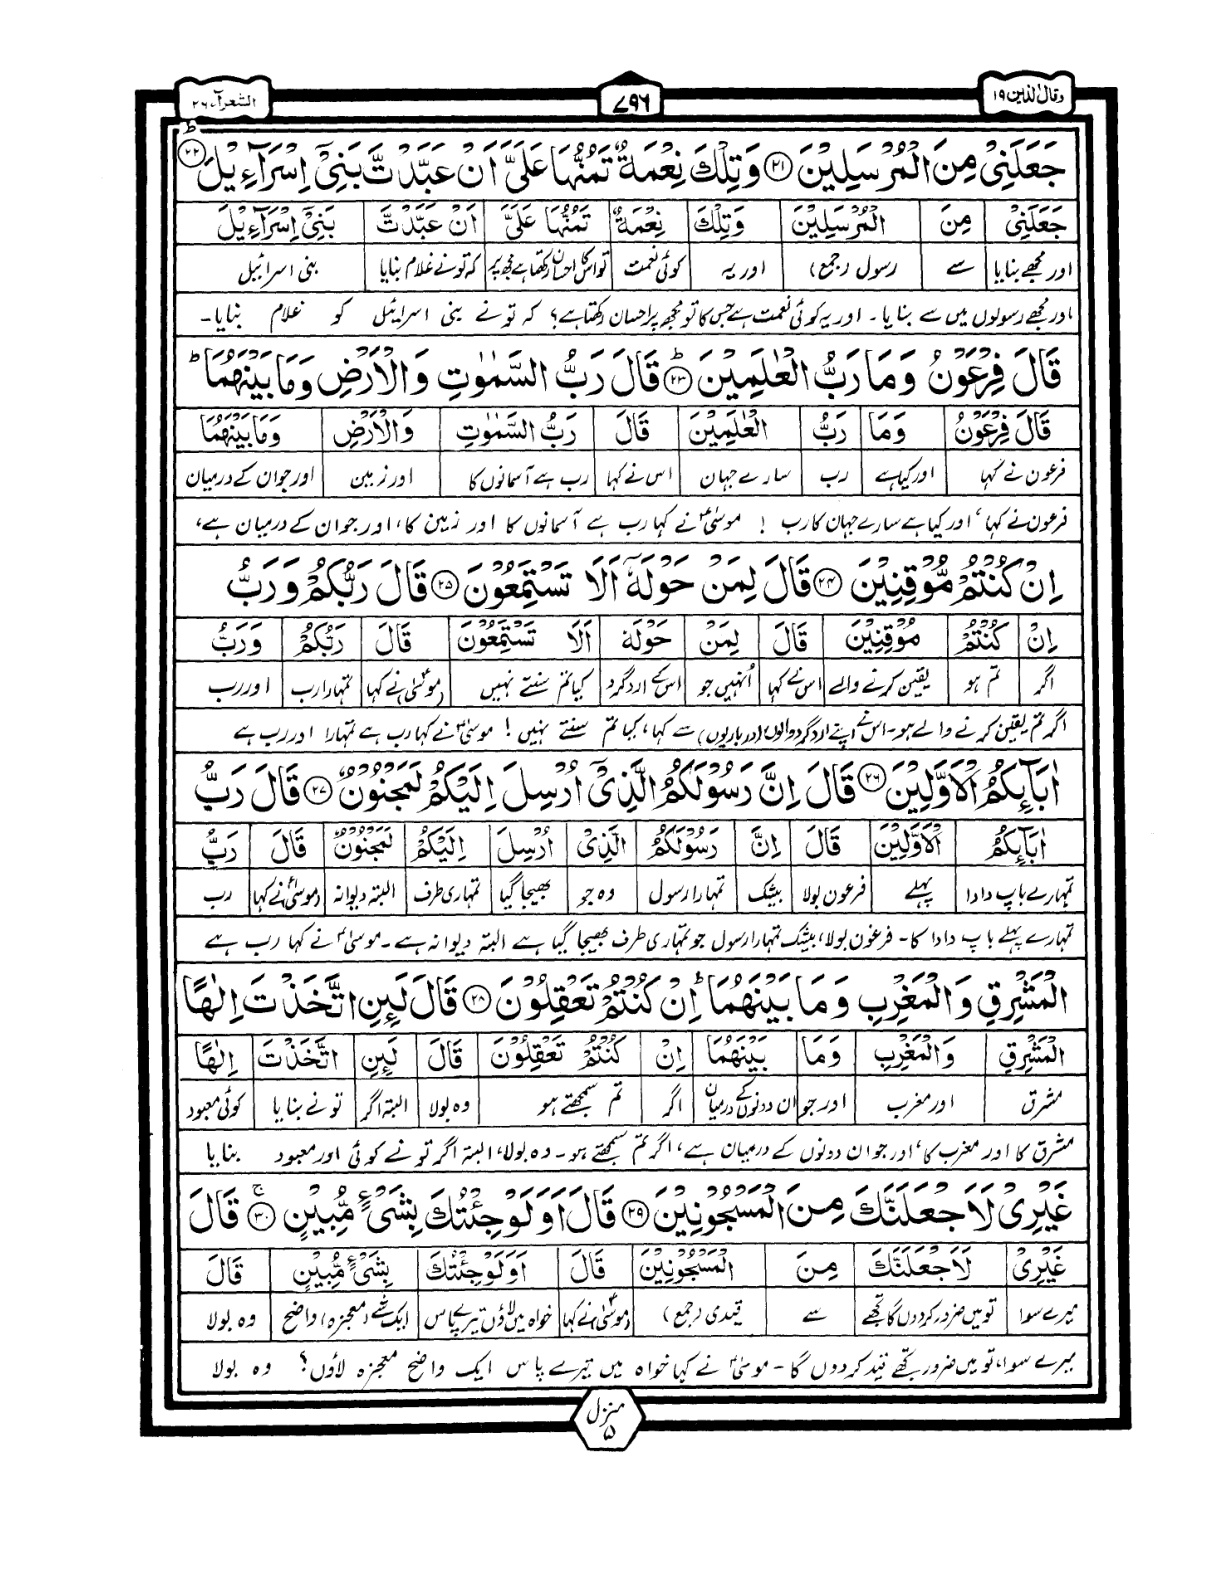 وقال الذین ۱۹
۷۹۶
الشعرآء ۲۶
جَعَلَنِیْ مِنَ الْمُرْسَلِیْنَ ﴿۲۱﴾ وَتِلْكَ نِعْمَةٌ تَمُنُّهَا عَلَیَّ اَنْ عَبَّدْتَّ بَنِیْۤ اِسْرَآءِیْلَ ﴿۲۲﴾ؕ
جَعَلَنِیْ | مِنَ | الْمُرْسَلِیْنَ | وَتِلْكَ | نِعْمَةٌ | تَمُنُّهَا عَلَیَّ | اَنْ عَبَّدْتَّ | بَنِیْۤ اِسْرَآءِیْلَ
اور مجھے بنایا | سے | رسول (جمع) | اور یہ | کوئی نعمت | تو اس کا احسان رکھتا ہے مجھ پر | کہ تو نے غلام بنایا | بنی اسرائیل
اور مجھے رسولوں میں سے بنایا۔ اور یہ کوئی نعمت ہے جس کا تو مجھ پر احسان رکھتا ہے؟ کہ تو نے بنی اسرائیل کو غلام بنایا۔
قَالَ فِرْعَوْنُ وَمَا رَبُّ الْعٰلَمِیْنَ ﴿۲۳﴾ؕ قَالَ رَبُّ السَّمٰوٰتِ وَالْاَرْضِ وَمَا بَیْنَهُمَا ؕ
قَالَ فِرْعَوْنُ | وَمَا | رَبُّ | الْعٰلَمِیْنَ | قَالَ | رَبُّ السَّمٰوٰتِ | وَالْاَرْضِ | وَمَا بَیْنَهُمَا
فرعون نے کہا | اور کیا ہے | رب | سارے جہان | اس نے کہا | رب ہے آسمانوں کا | اور زمین | اور جو ان کے درمیان
فرعون نے کہا، اور کیا ہے سارے جہان کا رب ! موسیٰؑ نے کہا رب ہے آسمانوں کا اور زمین کا، اور جو ان کے درمیان ہے،
اِنْ كُنْتُمْ مُّوْقِنِیْنَ ﴿۲۴﴾ قَالَ لِمَنْ حَوْلَهٗۤ اَلَا تَسْتَمِعُوْنَ ﴿۲۵﴾ قَالَ رَبُّكُمْ وَرَبُّ
اِنْ | كُنْتُمْ | مُوْقِنِیْنَ | قَالَ | لِمَنْ | حَوْلَهٗ | اَلَا تَسْتَمِعُوْنَ | قَالَ | رَبُّكُمْ | وَرَبُّ
اگر | تم ہو | یقین کرنے والے | اس نے کہا | اُنہیں جو | اس کے اردگرد | کیا تم سنتے نہیں | (موسیٰؑ) نے کہا | تمہارا رب | اور رب
اگر تم یقین کرنے والے ہو۔ اس نے اپنے اردگرد والوں (درباریوں) سے کہا، کیا تم سنتے نہیں ! موسیٰؑ نے کہا رب ہے تمہارا اور رب ہے
اٰبَآئِكُمُ الْاَوَّلِیْنَ ﴿۲۶﴾ قَالَ اِنَّ رَسُوْلَكُمُ الَّذِیْۤ اُرْسِلَ اِلَیْكُمْ لَمَجْنُوْنٌ ﴿۲۷﴾ قَالَ رَبُّ
اٰبَآئِكُمُ | الْاَوَّلِیْنَ | قَالَ | اِنَّ | رَسُوْلَكُمُ | الَّذِیْ | اُرْسِلَ | اِلَیْكُمْ | لَمَجْنُوْنٌ | قَالَ | رَبُّ
تمہارے باپ دادا | پہلے | فرعون بولا | بیشک | تمہارا رسول | وہ جو | بھیجا گیا | تمہاری طرف | البتہ دیوانہ | (موسیٰؑ نے کہا) | رب
تمہارے پہلے باپ دادا کا۔ فرعون بولا، بیشک تمہارا رسول جو تمہاری طرف بھیجا گیا ہے البتہ دیوانہ ہے۔ موسیٰؑ نے کہا رب ہے
الْمَشْرِقِ وَالْمَغْرِبِ وَمَا بَیْنَهُمَا ؕ اِنْ كُنْتُمْ تَعْقِلُوْنَ ﴿۲۸﴾ قَالَ لَئِنِ اتَّخَذْتَ اِلٰهًا
الْمَشْرِقِ | وَالْمَغْرِبِ | وَمَا | بَیْنَهُمَا | اِنْ | كُنْتُمْ تَعْقِلُوْنَ | قَالَ | لَئِنِ | اتَّخَذْتَ | اِلٰهًا
مشرق | اور مغرب | اور جو | ان دونوں کے درمیان | اگر | تم سمجھتے ہو | وہ بولا | البتہ اگر | تو نے بنایا | کوئی معبود
مشرق کا اور مغرب کا، اور جو ان دونوں کے درمیان ہے، اگر تم سمجھتے ہو۔ وہ بولا، البتہ اگر تو نے کوئی اور معبود بنایا
غَیْرِیْ لَاَجْعَلَنَّكَ مِنَ الْمَسْجُوْنِیْنَ ﴿۲۹﴾ قَالَ اَوَلَوْ جِئْتُكَ بِشَیْءٍ مُّبِیْنٍ ﴿۳۰﴾ۚ قَالَ
غَیْرِیْ | لَاَجْعَلَنَّكَ | مِنَ | الْمَسْجُوْنِیْنَ | قَالَ | اَوَلَوْ جِئْتُكَ | بِشَیْءٍ مُّبِیْنٍ | قَالَ
میرے سوا | تو میں ضرور کردوں گا تجھے | سے | قیدی (جمع) | (موسیٰؑ) نے کہا | خواہ میں لاؤں تیرے پاس | ایک شے (معجزہ) واضح | وہ بولا
میرے سوا، تو میں ضرور تجھے قید کردوں گا۔ موسیٰؑ نے کہا خواہ میں تیرے پاس ایک واضح معجزہ لاؤں؟ وہ بولا
منزل ۵